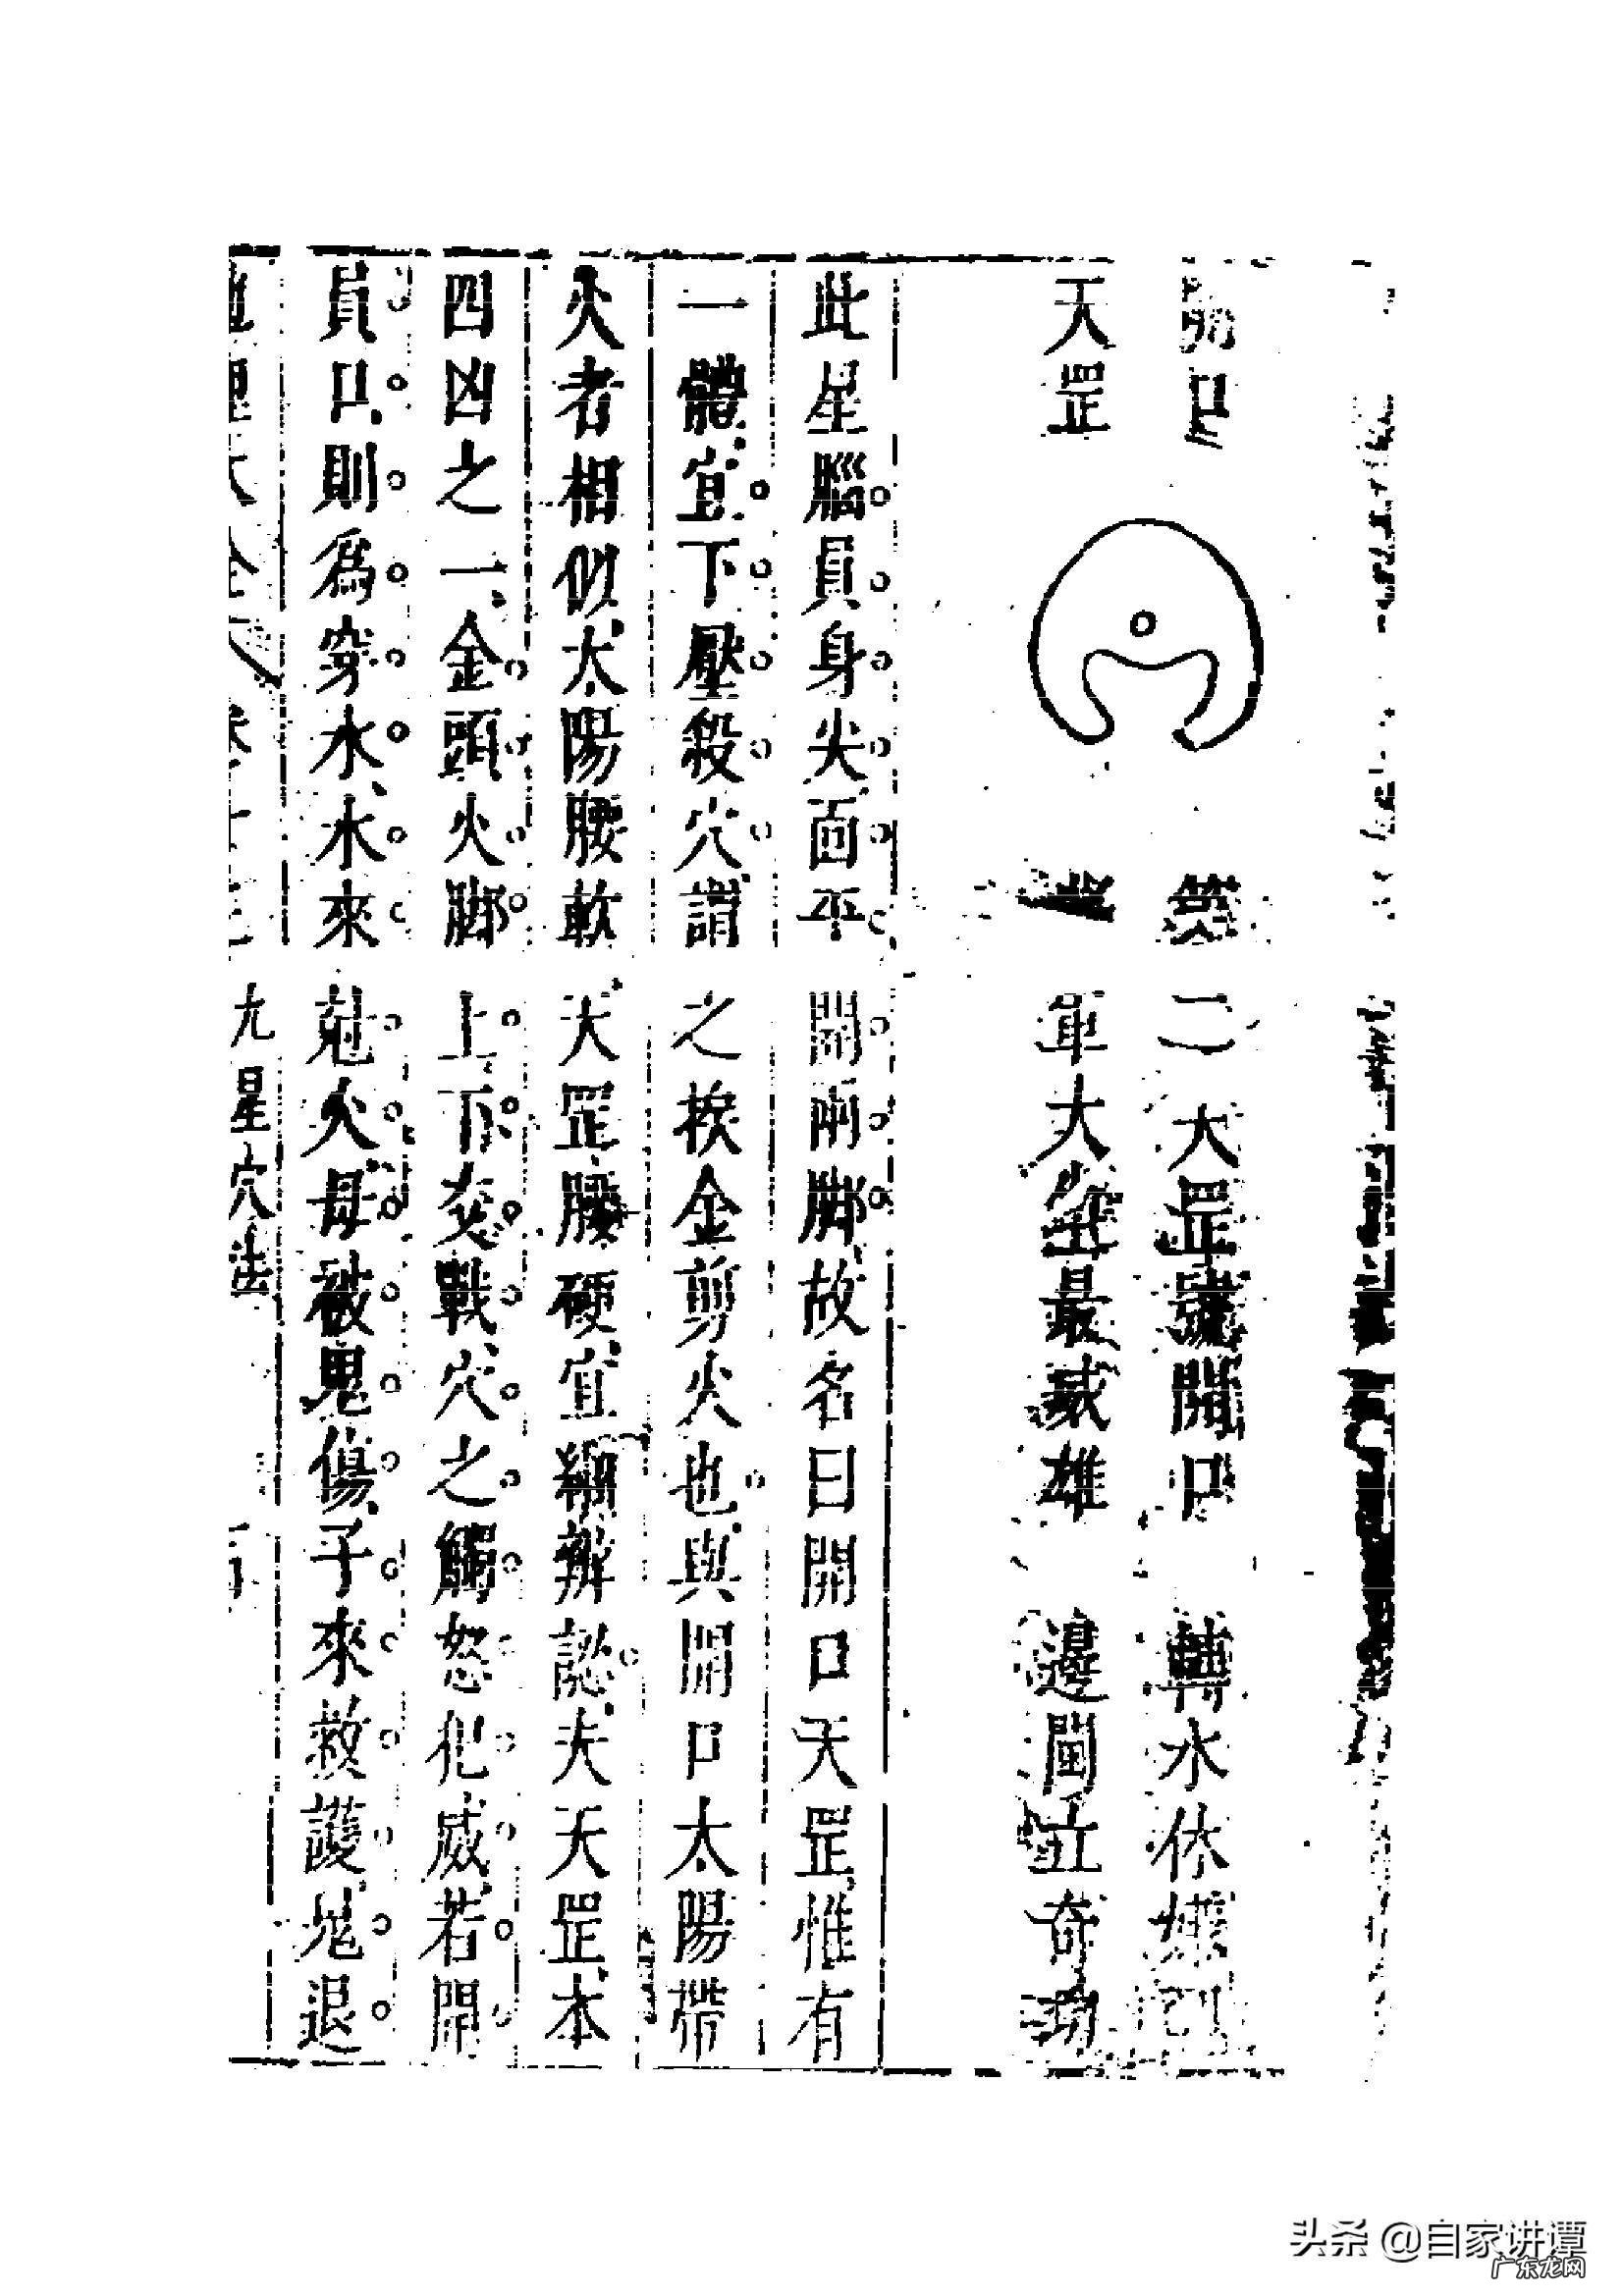 開口
天罡
第二天罡號開口　轉水休嫌凹
掌軍大坐最威雄　邊閫立奇功
此星腦員身尖面平開兩脚故名曰開口天罡惟有
一體宜下壓殺穴謂之挨金剪火也與開口太陽帶
火者相似太陽腰軟天罡腰硬宜細辨認夫天罡本
四凶之一金頭火脚上下交戰穴之觸怒犯威若開
員口則爲穿水水來尅火母被鬼傷子來救護鬼退
九星穴法
头条 @自家讲谭
广东龙网